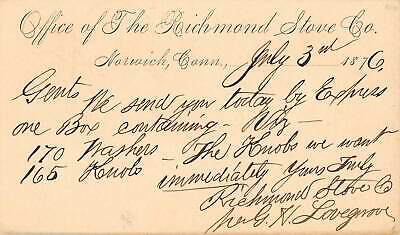 Office of The Richmond Stove Co.
Norwich, Conn., July 3rd 1876.
Gents
We send you today by Express
one Box containing - Viz -
170 Washers - The Knobs we want
165 Knobs immediately Yours Truly
Richmond Stove Co
Per G. N. Lovegrove